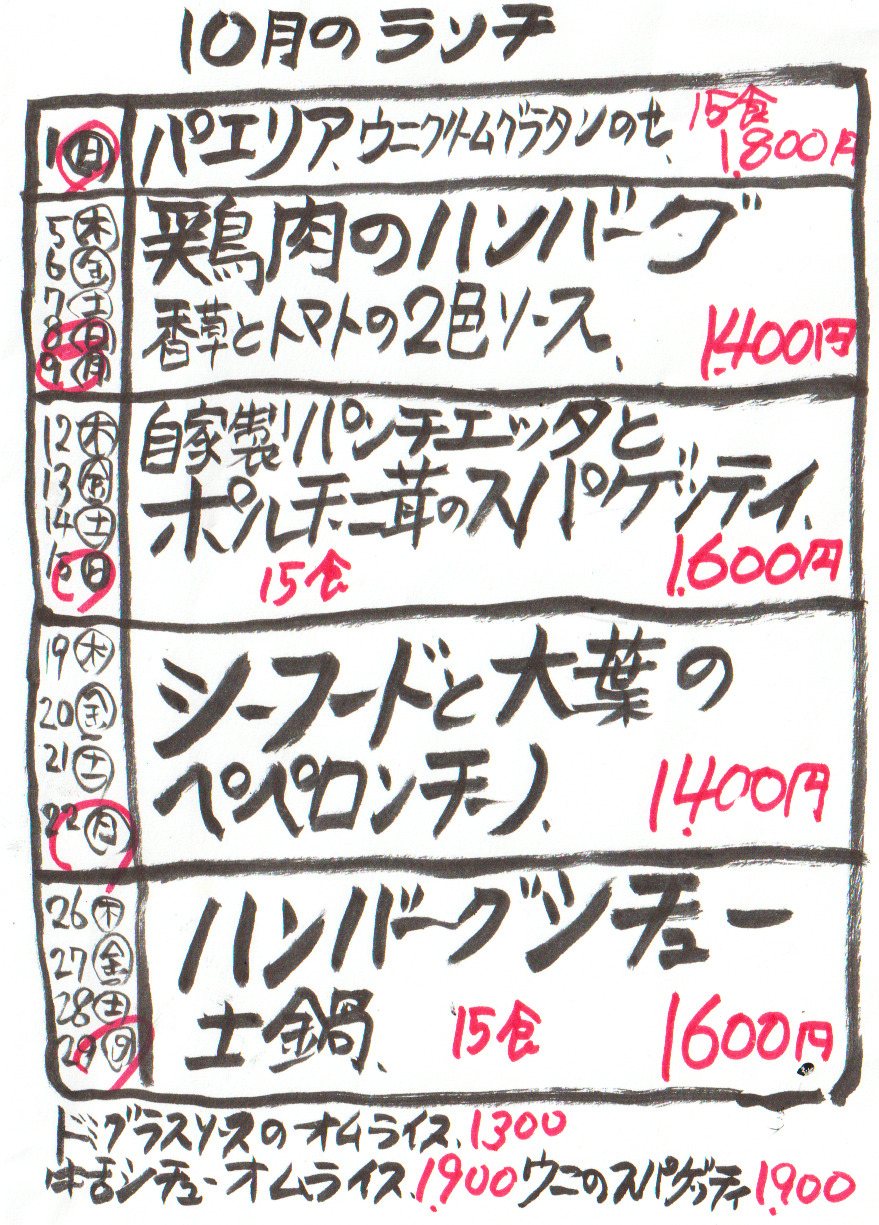 10月のランチ
1 日 パエリア、ウニクリームグラタンのせ、 15食 1.800円
5 木 鶏肉のハンバーグ
6 金
7 土 香草とトマトの2色ソース、 1.400円
8 日
9 月
12 木 自家製パンチェッタと
13 金 ポルチーニ茸のスパゲッティ、
14 土
15 日 15食 1.600円
19 木 シーフードと大葉の
20 金
21 土 ペペロンチーノ、 1.400円
22 日
26 木 ハンバーグシチュー
27 金
28 土 土鍋、 15食 1600円
29 日
ドミグラスソースのオムライス、1300
牛舌シチューオムライス、1.900 ウニのスパゲッティ 1.900